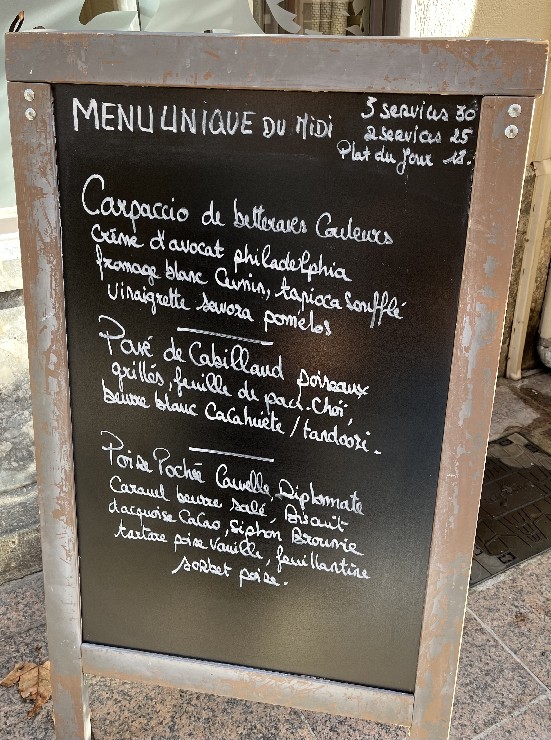 MENU UNIQUE DU MIDI
3 services 30
2 services 25
Plat du Jour 18.
Carpaccio de betteraves Couleurs
Crème d'avocat philadelphia
fromage blanc Cumin, tapioca soufflé
vinaigrette savora pomélos
Pavé de Cabillaud poireaux
grillés, feuille de pac-choï,
beurre blanc Cacahuète / tandoori.
Poire Pochée Cannelle Diplomate
Caramel beurre salé, Biscuit
dacquoise Cacao, siphon Brownie
tartare poire vanille, feuillantine
sorbet poire.